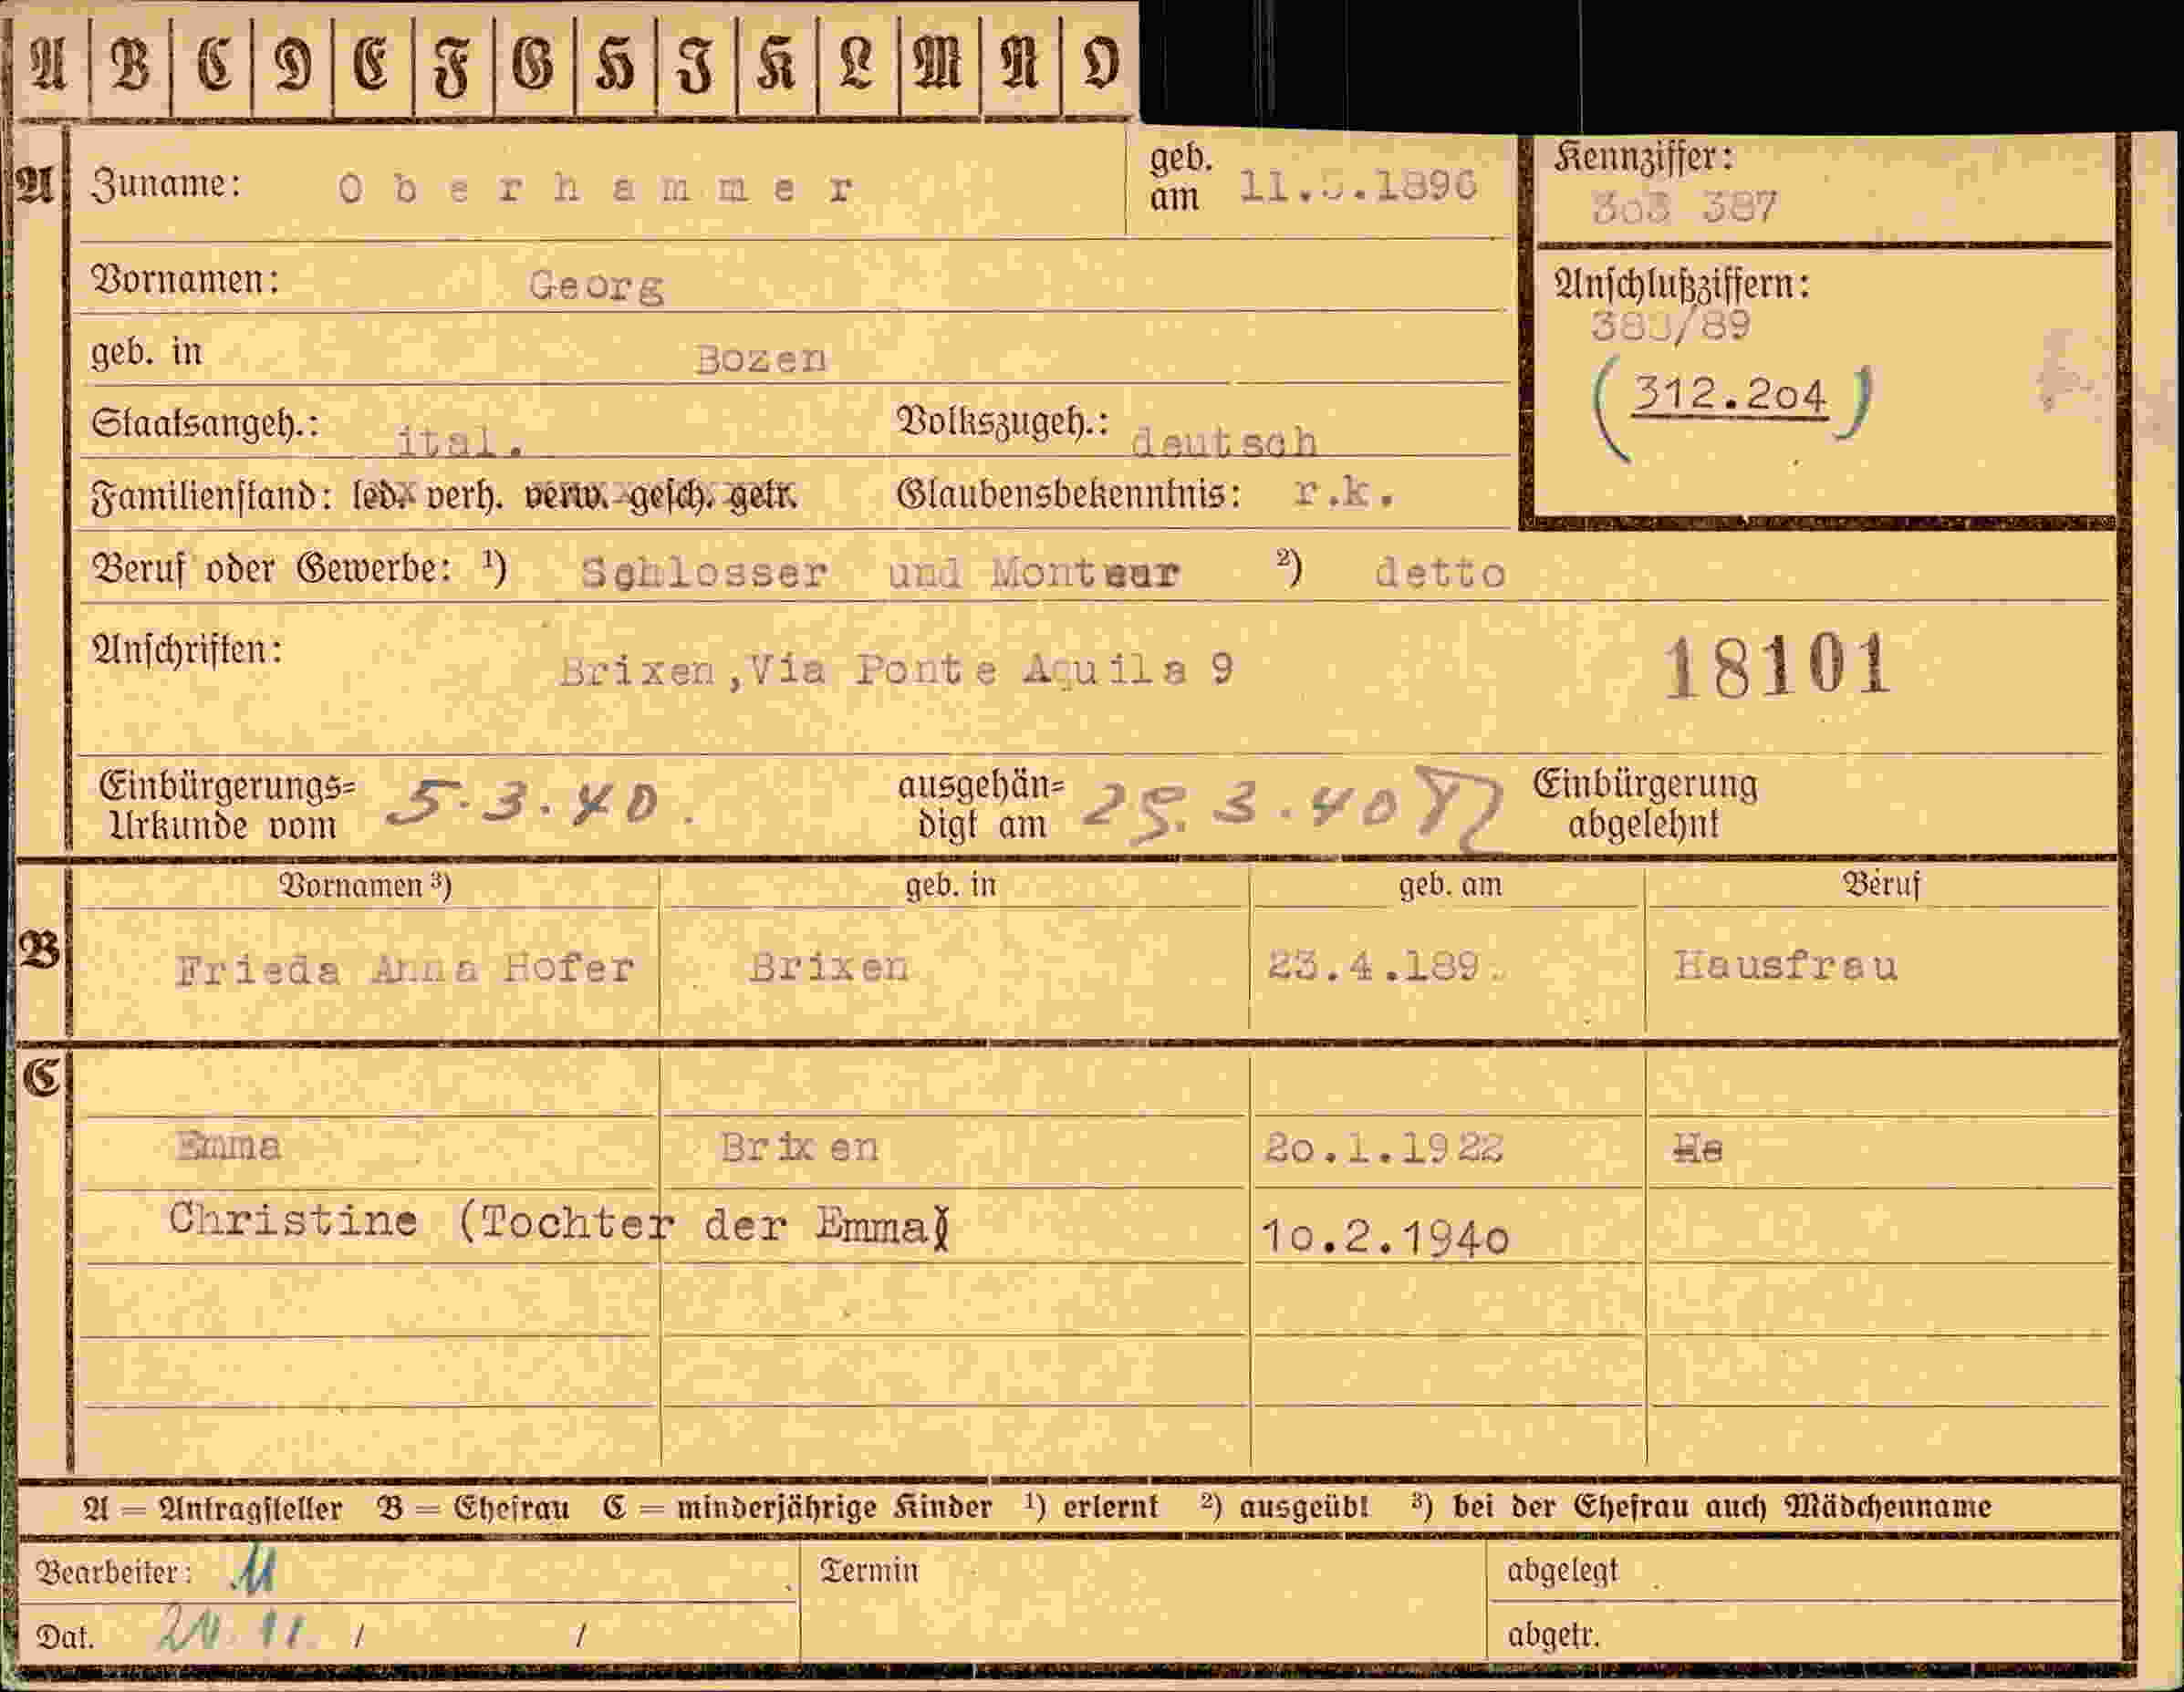 A B C D E F G H I K L M N O
A Zuname: Oberhammer geb. am 11. .1896
Kennziffer: 303 387
Vornamen: Georg
Anschlußziffern: 38 /89
geb. in Bozen
(312.204)
Staatsangeh.: ital. Volkszugeh.: deutsch
Familienstand: led. verh. verw. gesch. getr. Glaubensbekenntnis: r.k.
Beruf oder Gewerbe: ¹) Schlosser und Monteur ²) detto
Anschriften: Brixen,Via Ponte Aquila 9 18101
Einbürgerungs=Urkunde vom 5.3.40. ausgehän=digt am 29.3.40 Einbürgerung abgelehnt
Vornamen ³) geb. in geb. am Beruf
B Frieda Anna Hofer Brixen 23.4.189 Hausfrau
C
Emma Brixen 20.1.1922 Ha
Christine (Tochter der Emma) 10.2.1940
A = Antragsteller B = Ehefrau C = minderjährige Kinder ¹) erlernt ²) ausgeübt ³) bei der Ehefrau auch Mädchenname
Bearbeiter: Termin abgelegt
Dat. / / abgetr.